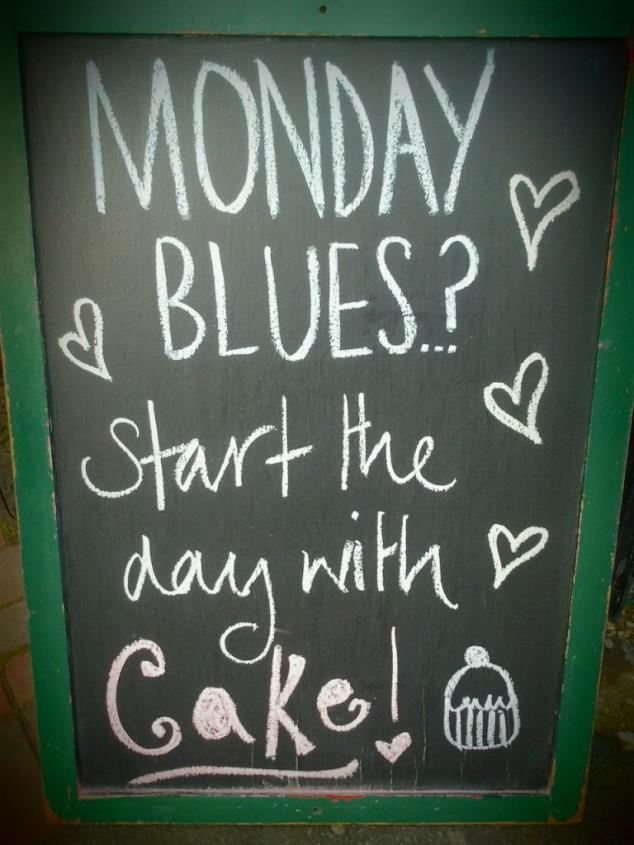 MONDAY
BLUES...?
Start the
day with
Cake!